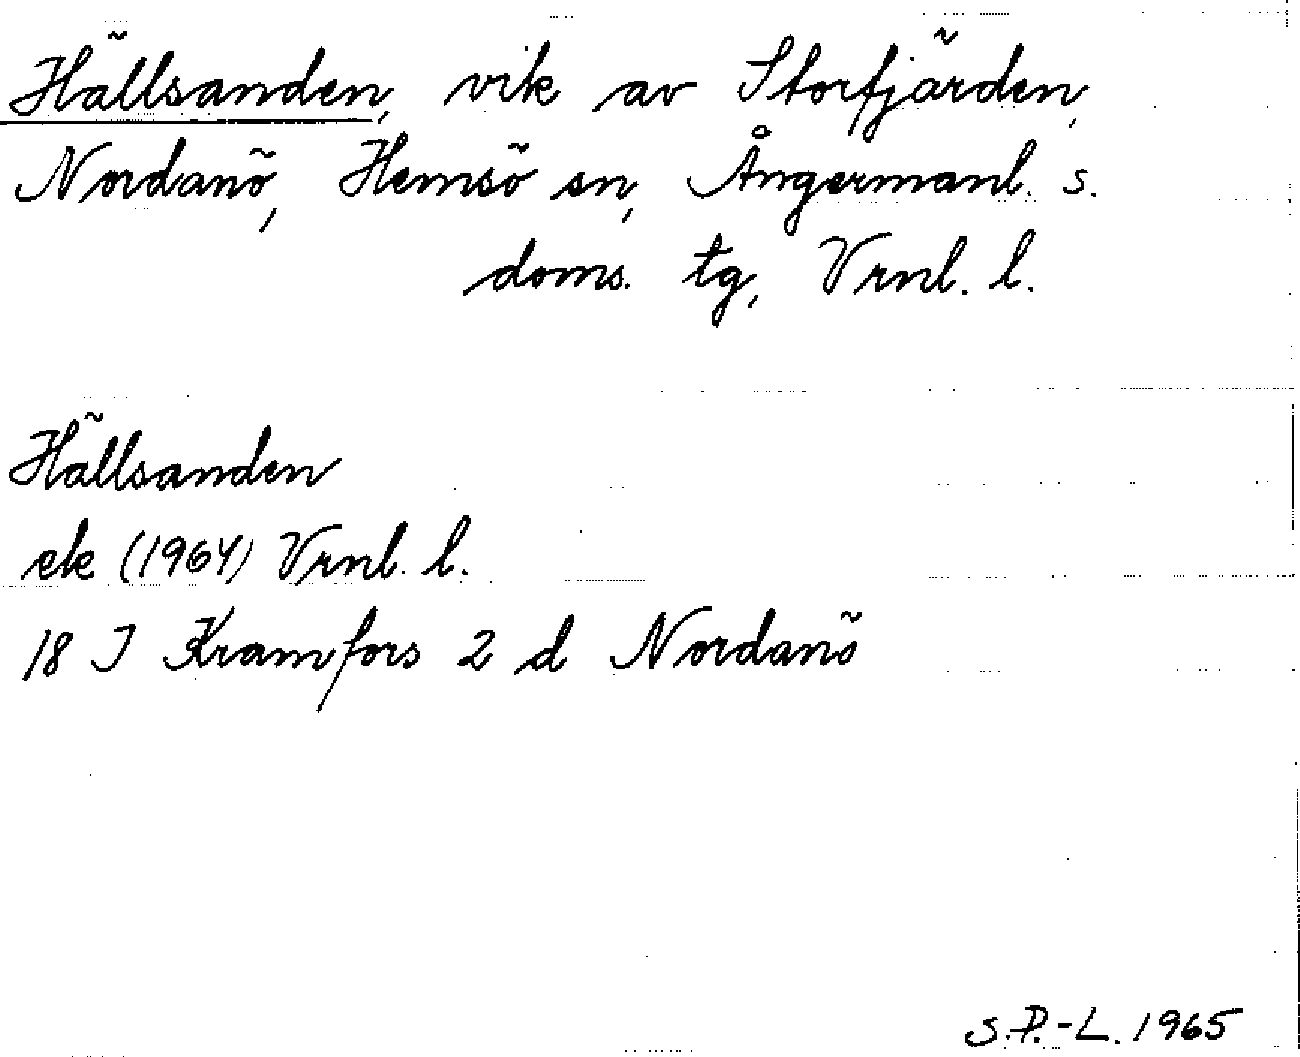 Hällsanden, vik av Storfjärden,
Nordanö, Hemsö sn, Ångermanl. s.
doms. tg, Vrnl. l.
Hällsanden
ek (1964) Vrnl. l.
18 I Kramfors 2 d Nordanö
S.P.-L. 1965